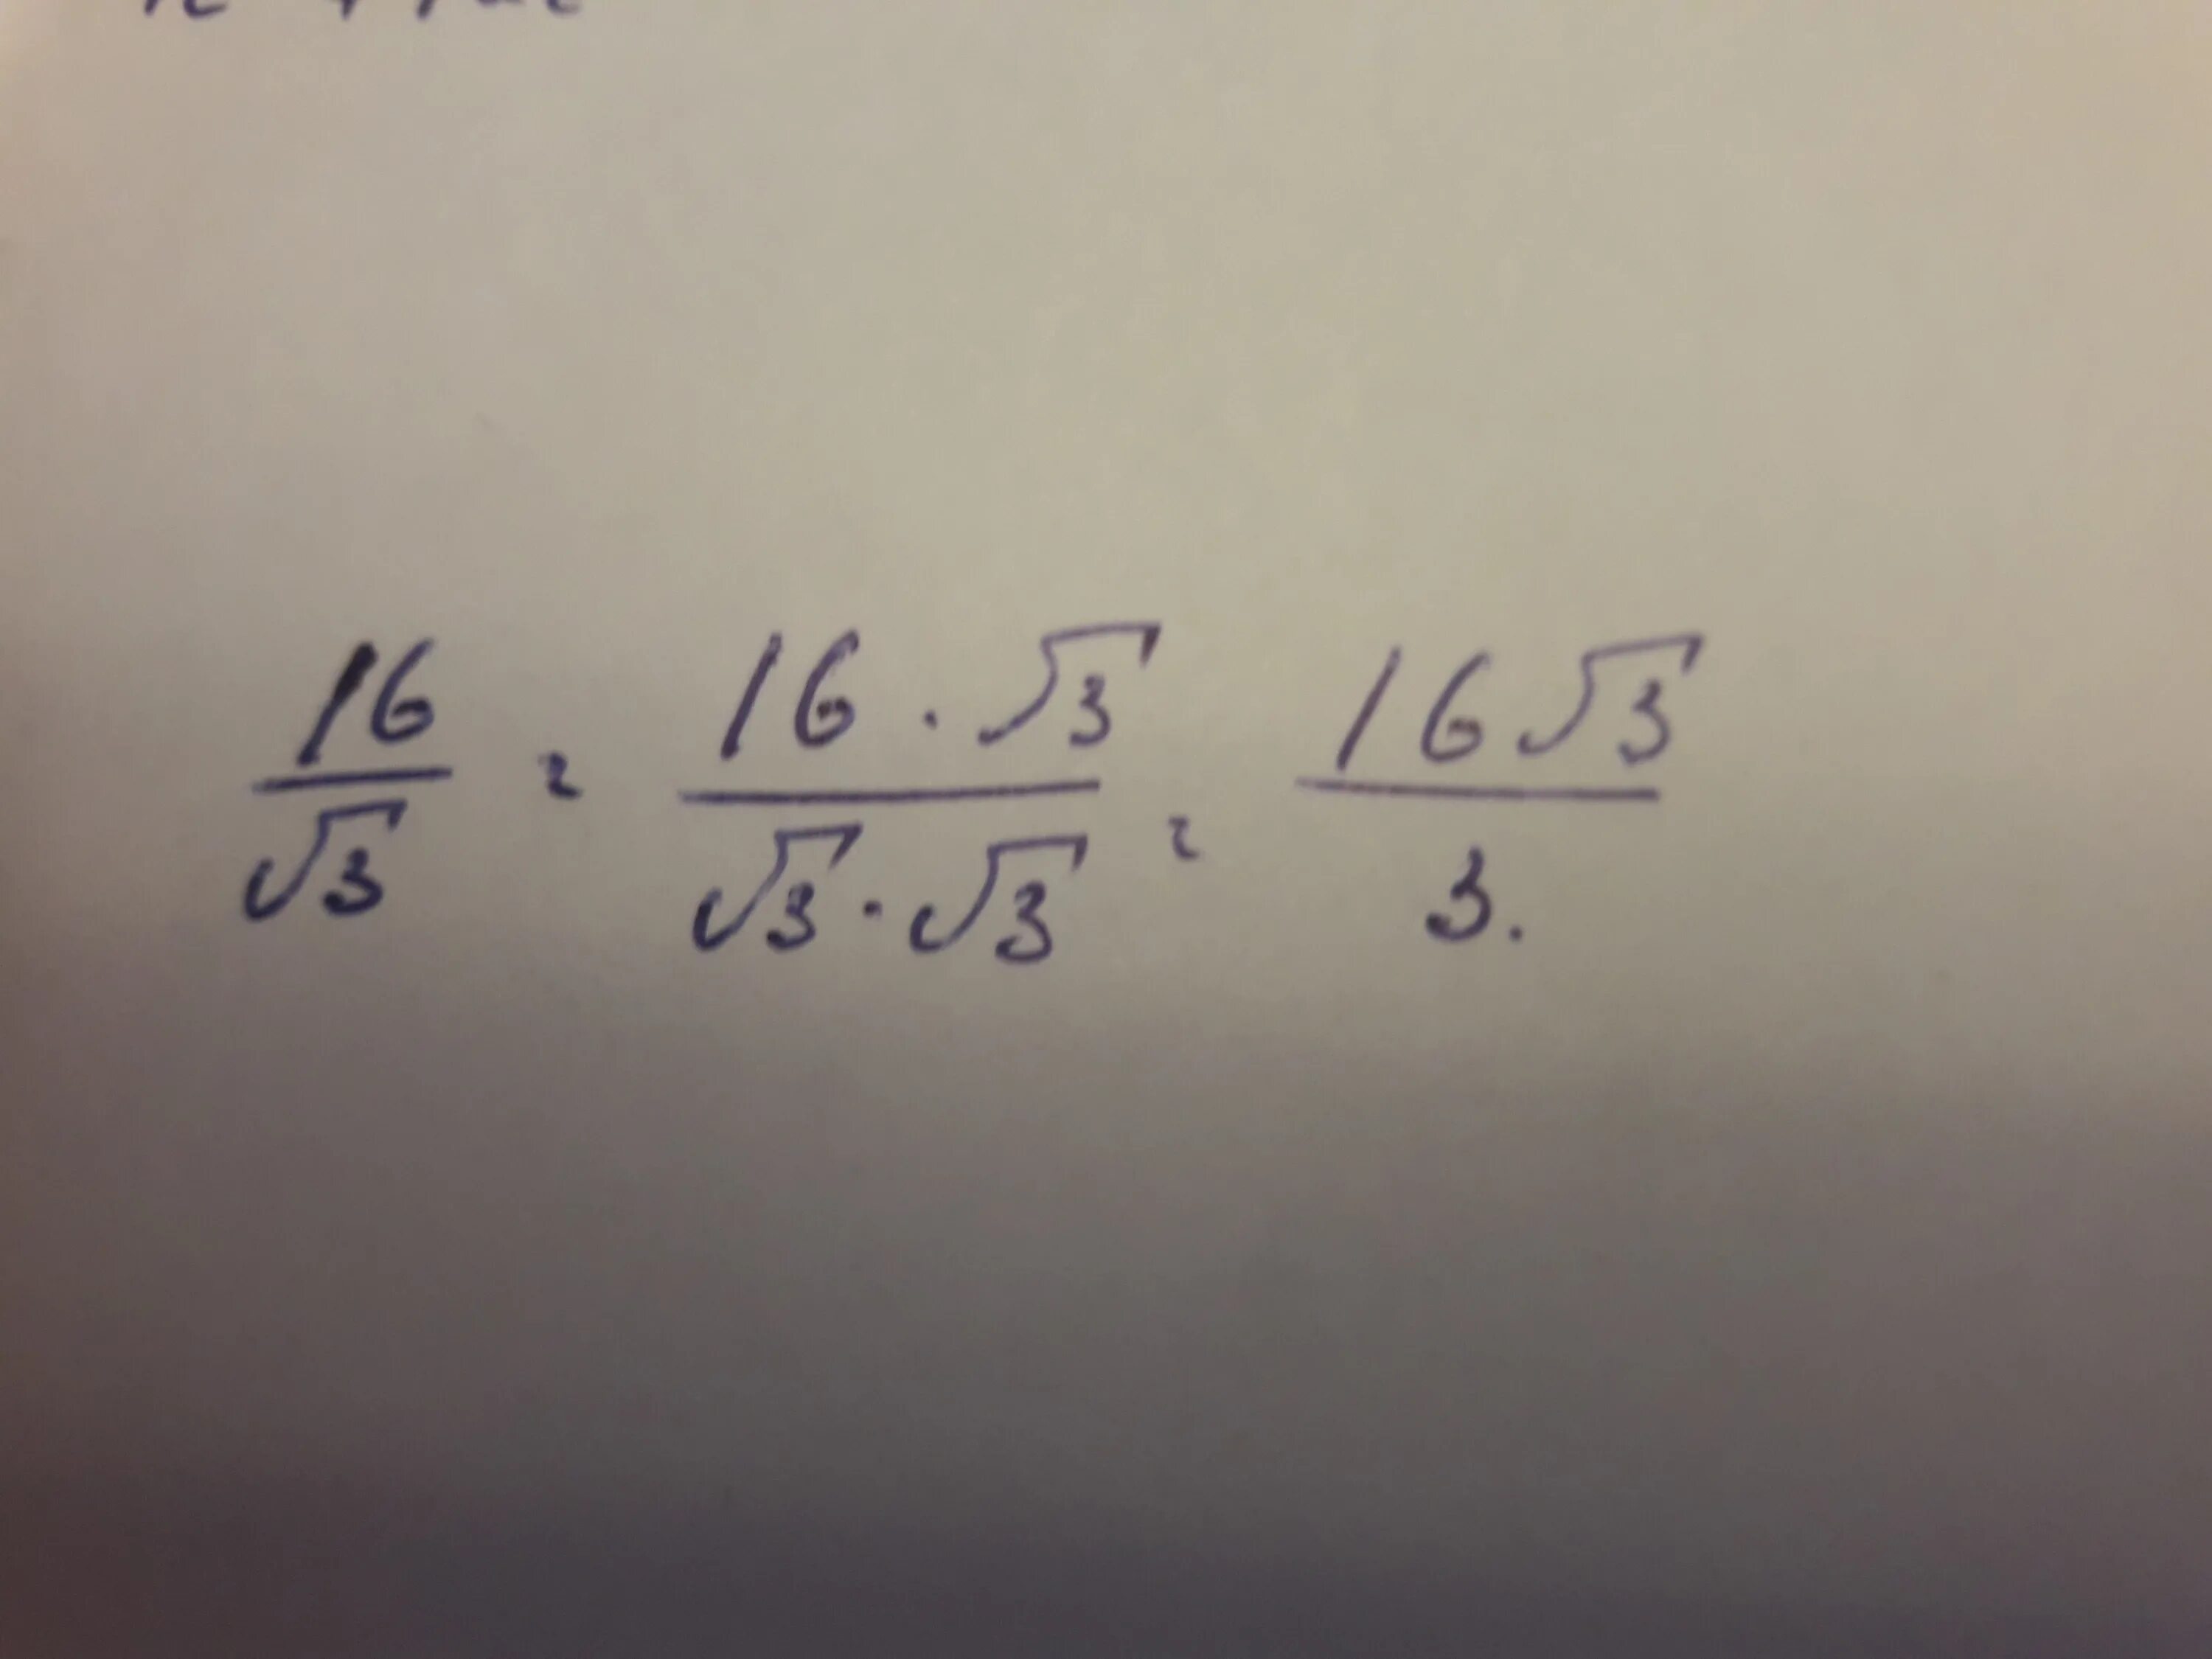 16/√3 = 16·√3/√3·√3 = 16√3/3.